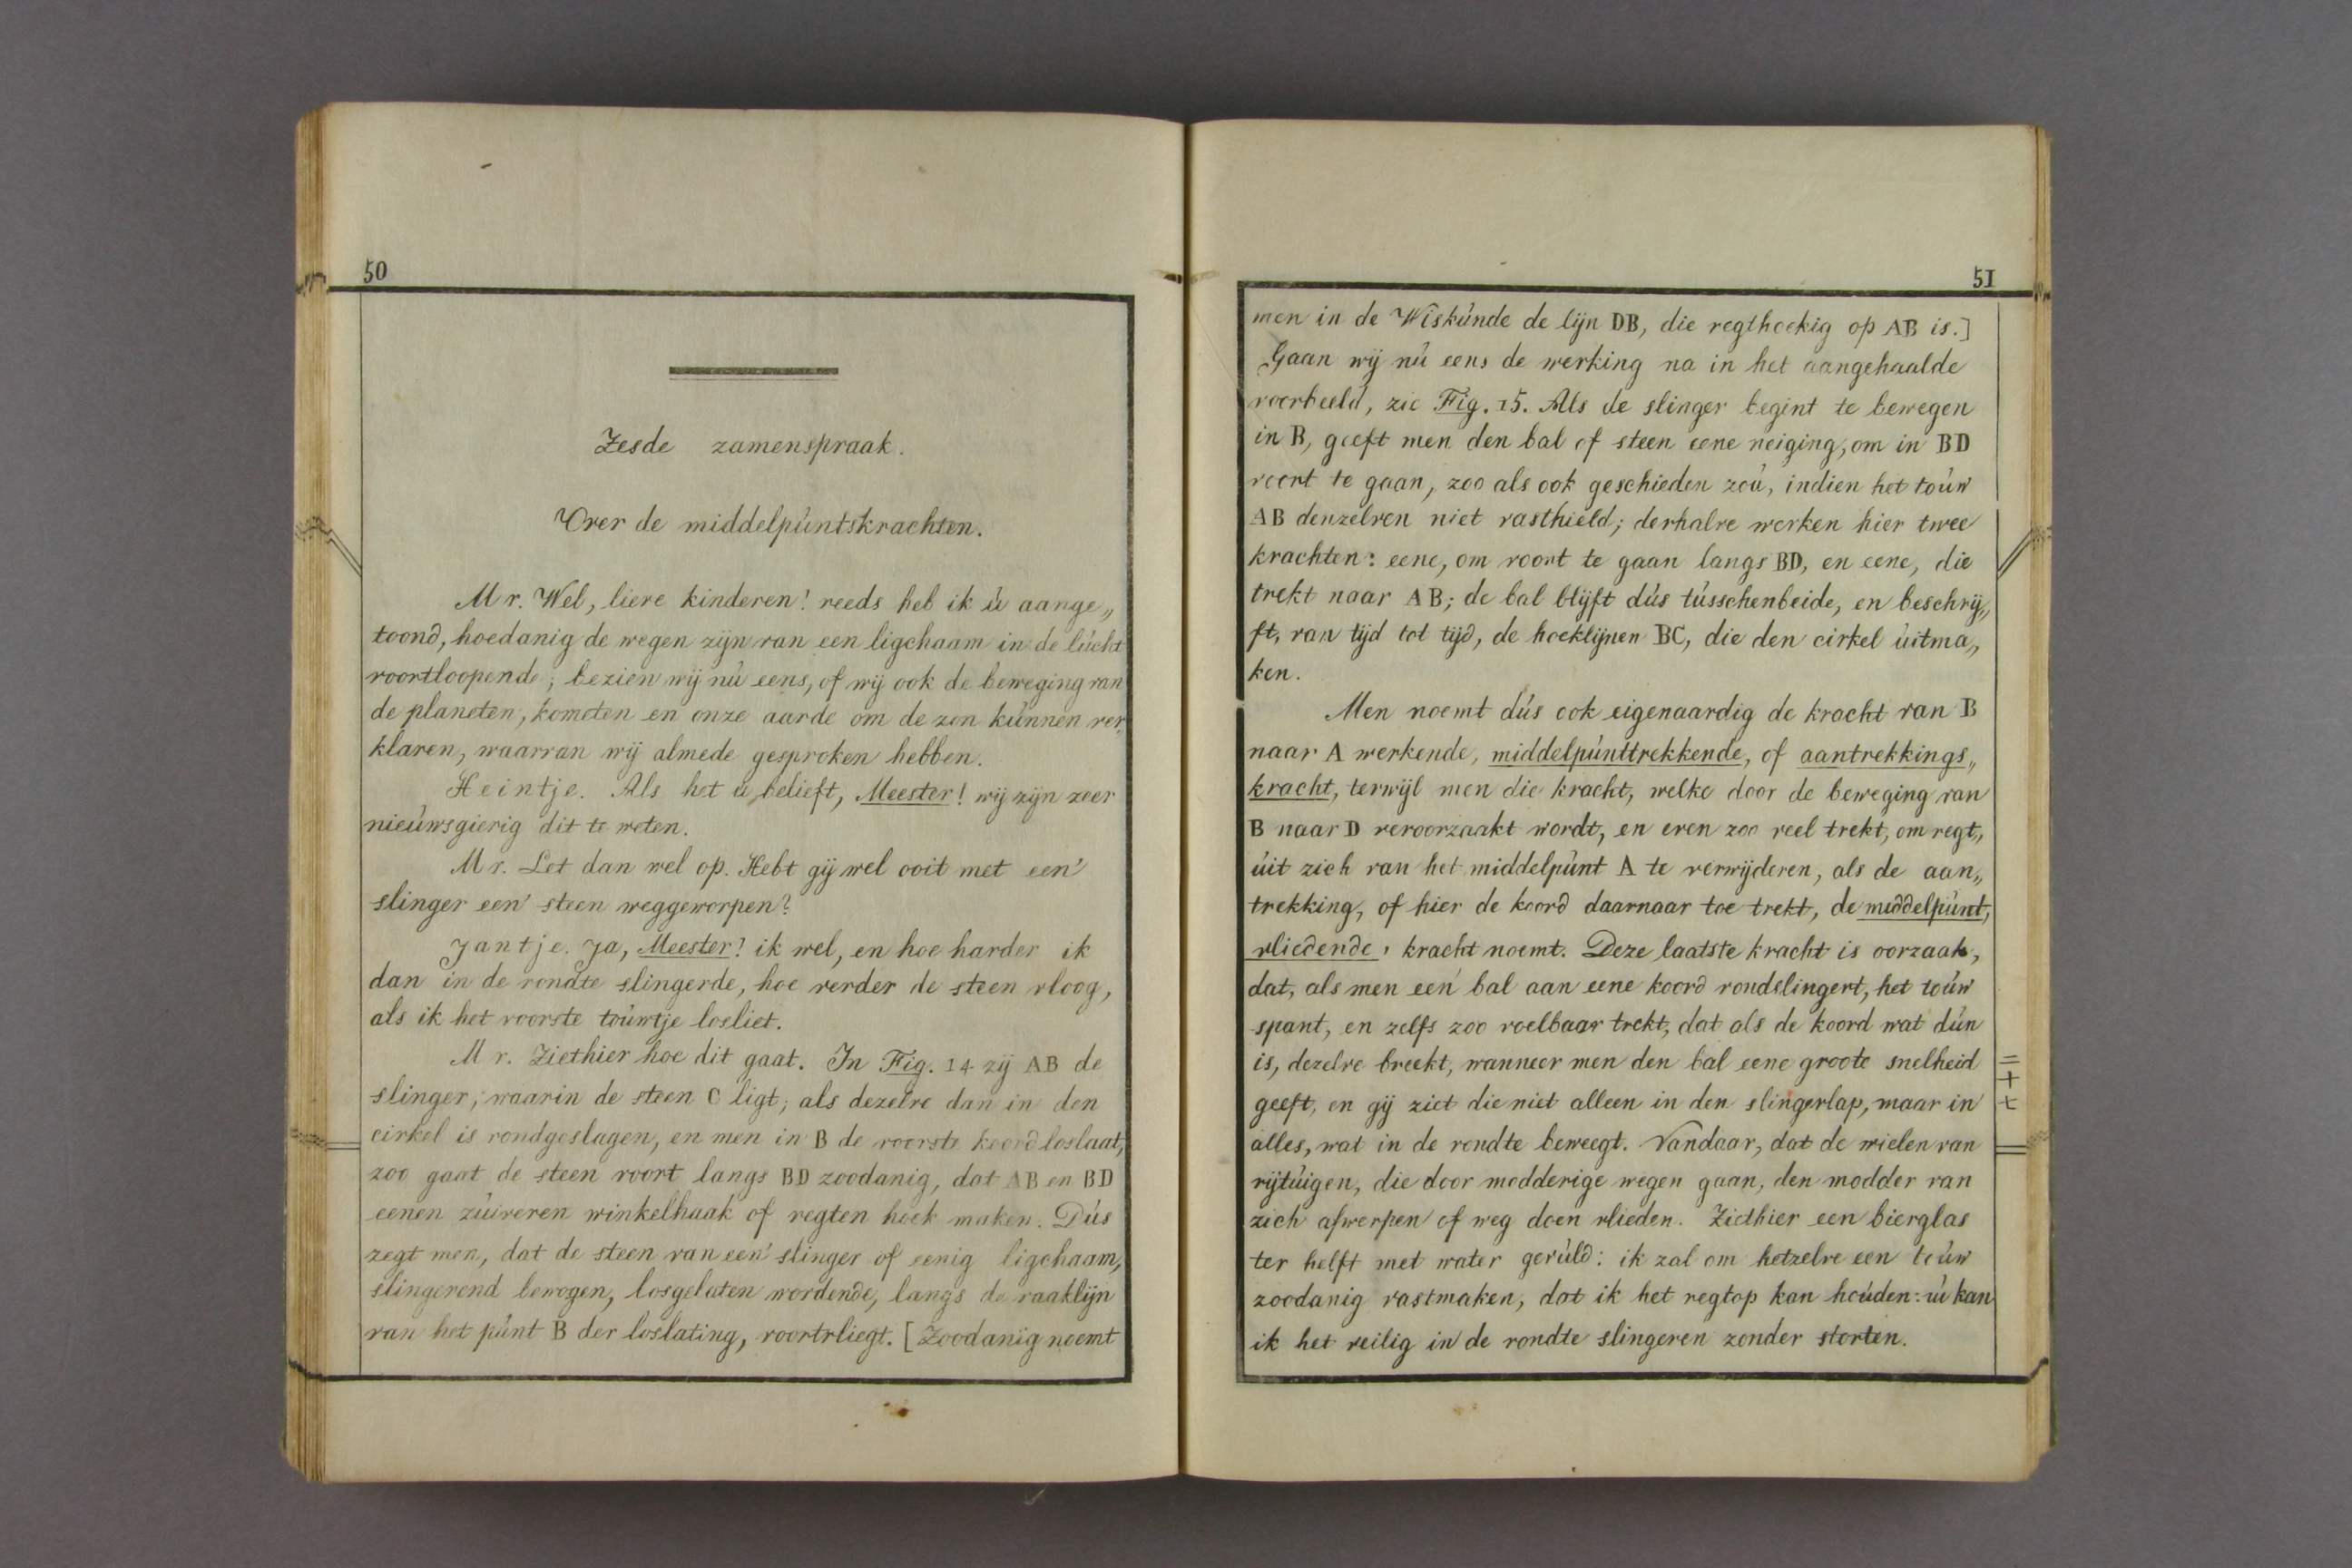 50
Zesde zamenspraak.
Over de middelpúntskrachten.
Mr. Wel, lieve kinderen! reeds heb ik ú aange„
toond, hoedanig de wegen zijn van een ligchaam in de lúcht
voortloopende; bezien wij nú eens, of wij ook de beweging van
de planeten, kometen en onze aarde om de zon kúnnen ver„
klaren, waarvan wij almede gesproken hebben.
Heintje. Als het ú belieft, Meester! wij zijn zeer
nieúwsgierig dit te weten.
Mr. Let dan wel op. Hebt gij wel ooit met een'
slinger een' steen weggeworpen?
Jantje. Ja, Meester! ik wel, en hoe harder ik
dan in de rondte slingerde, hoe verder de steen vloog,
als ik het voorste toúwtje losliet.
Mr. Ziethier hoe dit gaat. In Fig. 14 zij AB de
slinger, waarin de steen C ligt; als dezelve dan in den
cirkel is rondgeslagen, en men in B de voorste koord loslaat,
zoo gaat de steen voort langs BD zoodanig, dat AB en BD
eenen zúiveren winkelhaak of regten hoek maken. Dús
zegt men, dat de steen van een' slinger of eenig ligchaam,
slingerend bewogen, losgelaten wordende, langs de raaklijn
van het púnt B der loslating, voortvliegt. [Zoodanig noemt
51
men in de Wiskúnde de lijn DB, die regthoekig op AB is.]
Gaan wij nú eens de werking na in het aangehaalde
voorbeeld, zie Fig. 15. Als de slinger begint te bewegen
in B, geeft men den bal of steen eene neiging, om in BD
voort te gaan, zoo als ook geschieden zoú, indien het toúw
AB denzelven niet vasthield; derhalve werken hier twee
krachten: eene, om voort te gaan langs BD, en eene, die
trekt naar AB; de bal blijft dús tússchenbeide, en beschrij„
ft, van tijd tot tijd, de hoeklijnen BC, die den cirkel úitma„
ken.
Men noemt dús ook eigenaardig de kracht van B
naar A werkende, middelpúnttrekkende, of aantrekkings„
kracht, terwijl men die kracht, welke door de beweging van
B naar D veroorzaakt wordt, en even zoo veel trekt, om regt„
úit zich van het middelpúnt A te verwijderen, als de aan„
trekking, of hier de koord daarnaar toe trekt, de middelpúnt„
vliedende kracht noemt. Deze laatste kracht is oorzaak,
dat, als men een' bal aan eene koord rondslingert, het toúw
spant, en zelfs zoo voelbaar trekt, dat als de koord wat dún
is, dezelve breekt, wanneer men den bal eene groote snelheid
geeft, en gij ziet die niet alleen in den slingerlap, maar in
alles, wat in de rondte beweegt. Vandaar, dat de wielen van
rijtúigen, die door modderige wegen gaan, den modder van
zich afwerpen of weg doen vlieden. Ziethier een bierglas
ter helft met water gevúld: ik zal om hetzelve een toúw
zoodanig vastmaken, dat ik het regtop kan hoúden: nú kan
ik het veilig in de rondte slingeren zonder storten.